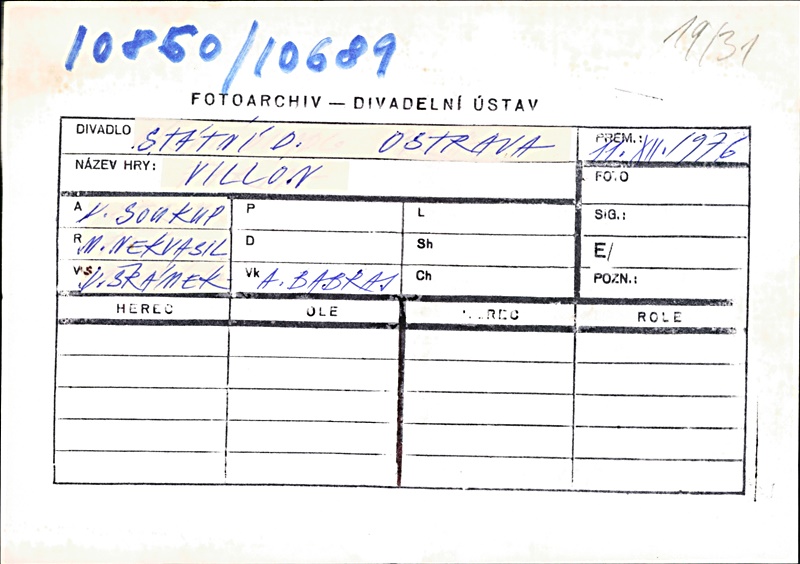 10850/10689
19/31
FOTOARCHIV — DIVADELNÍ ÚSTAV
DIVADLO STÁTNÍ D. OSTRAVA PREM.: 11. XII. 1976
NÁZEV HRY: VILLON FOTO
A V. SOUKUP P L SIG.:
R M. NEKVASIL D Sh E/
VS V. ŠRÁMEK Vk A. BABRAJ Ch POZN.:
HEREC OLE REC ROLE